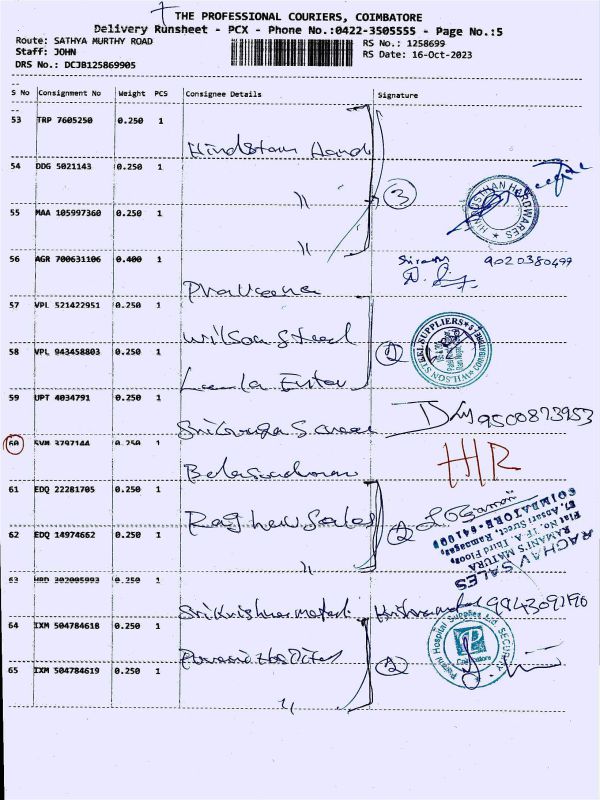 THE PROFESSIONAL COURIERS, COIMBATORE
Delivery Runsheet - PCX - Phone No.:0422-3505555 - Page No.:5
Route: SATHYA MURTHY ROAD
RS No.: 1258699
Staff: JOHN
RS Date: 16-Oct-2023
DRS No.: DCJB125869905
S No Consignment No Weight PCS Consignee Details Signature
53 TRP 7605250 0.250 1
Hindstan Hand
54 DDG 5021143 0.250 1
"
3
HINDUSTHAN HARDWARES
55 MAA 105997360 0.250 1
"
56 AGR 700631106 0.400 1
9020380499
Praveena
57 VPL 521422951 0.250 1
Wilson Steel
WILSON STEEL SUPPLIERS
58 VPL 943458803 0.250 1
Leela Enter
59 UPT 4034791 0.250 1
9500873953
60 SVM 3797144 0.250 1
HR
61 EDQ 22281705 0.250 1
Raghav Sales
2
RAGHAV SALES
RAMANI'S MATURA
Flat No. 1F A, Third Floor,
COIMBATORE-641 009
62 EDQ 14974662 0.250 1
"
63 HRD 302005993 0.250 1
Srikrishna
9943091190
64 IXM 504784618 0.250 1
2
65 IXM 504784619 0.250 1
"